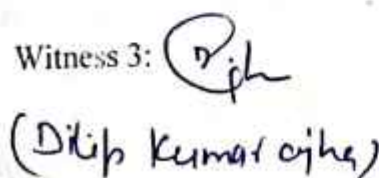 Witness 3:
(Dilip Kumar ojha)